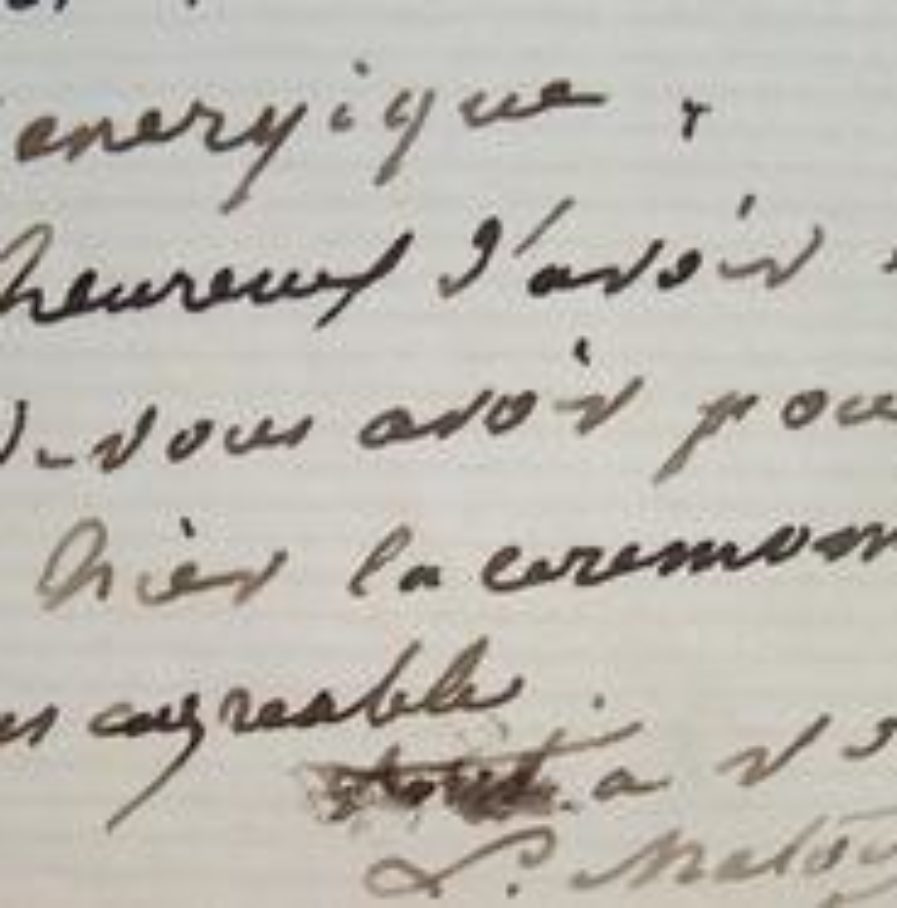 energique.
heureux d'avoir
vous avoir pou
hier la ceremon
agreable.
a v